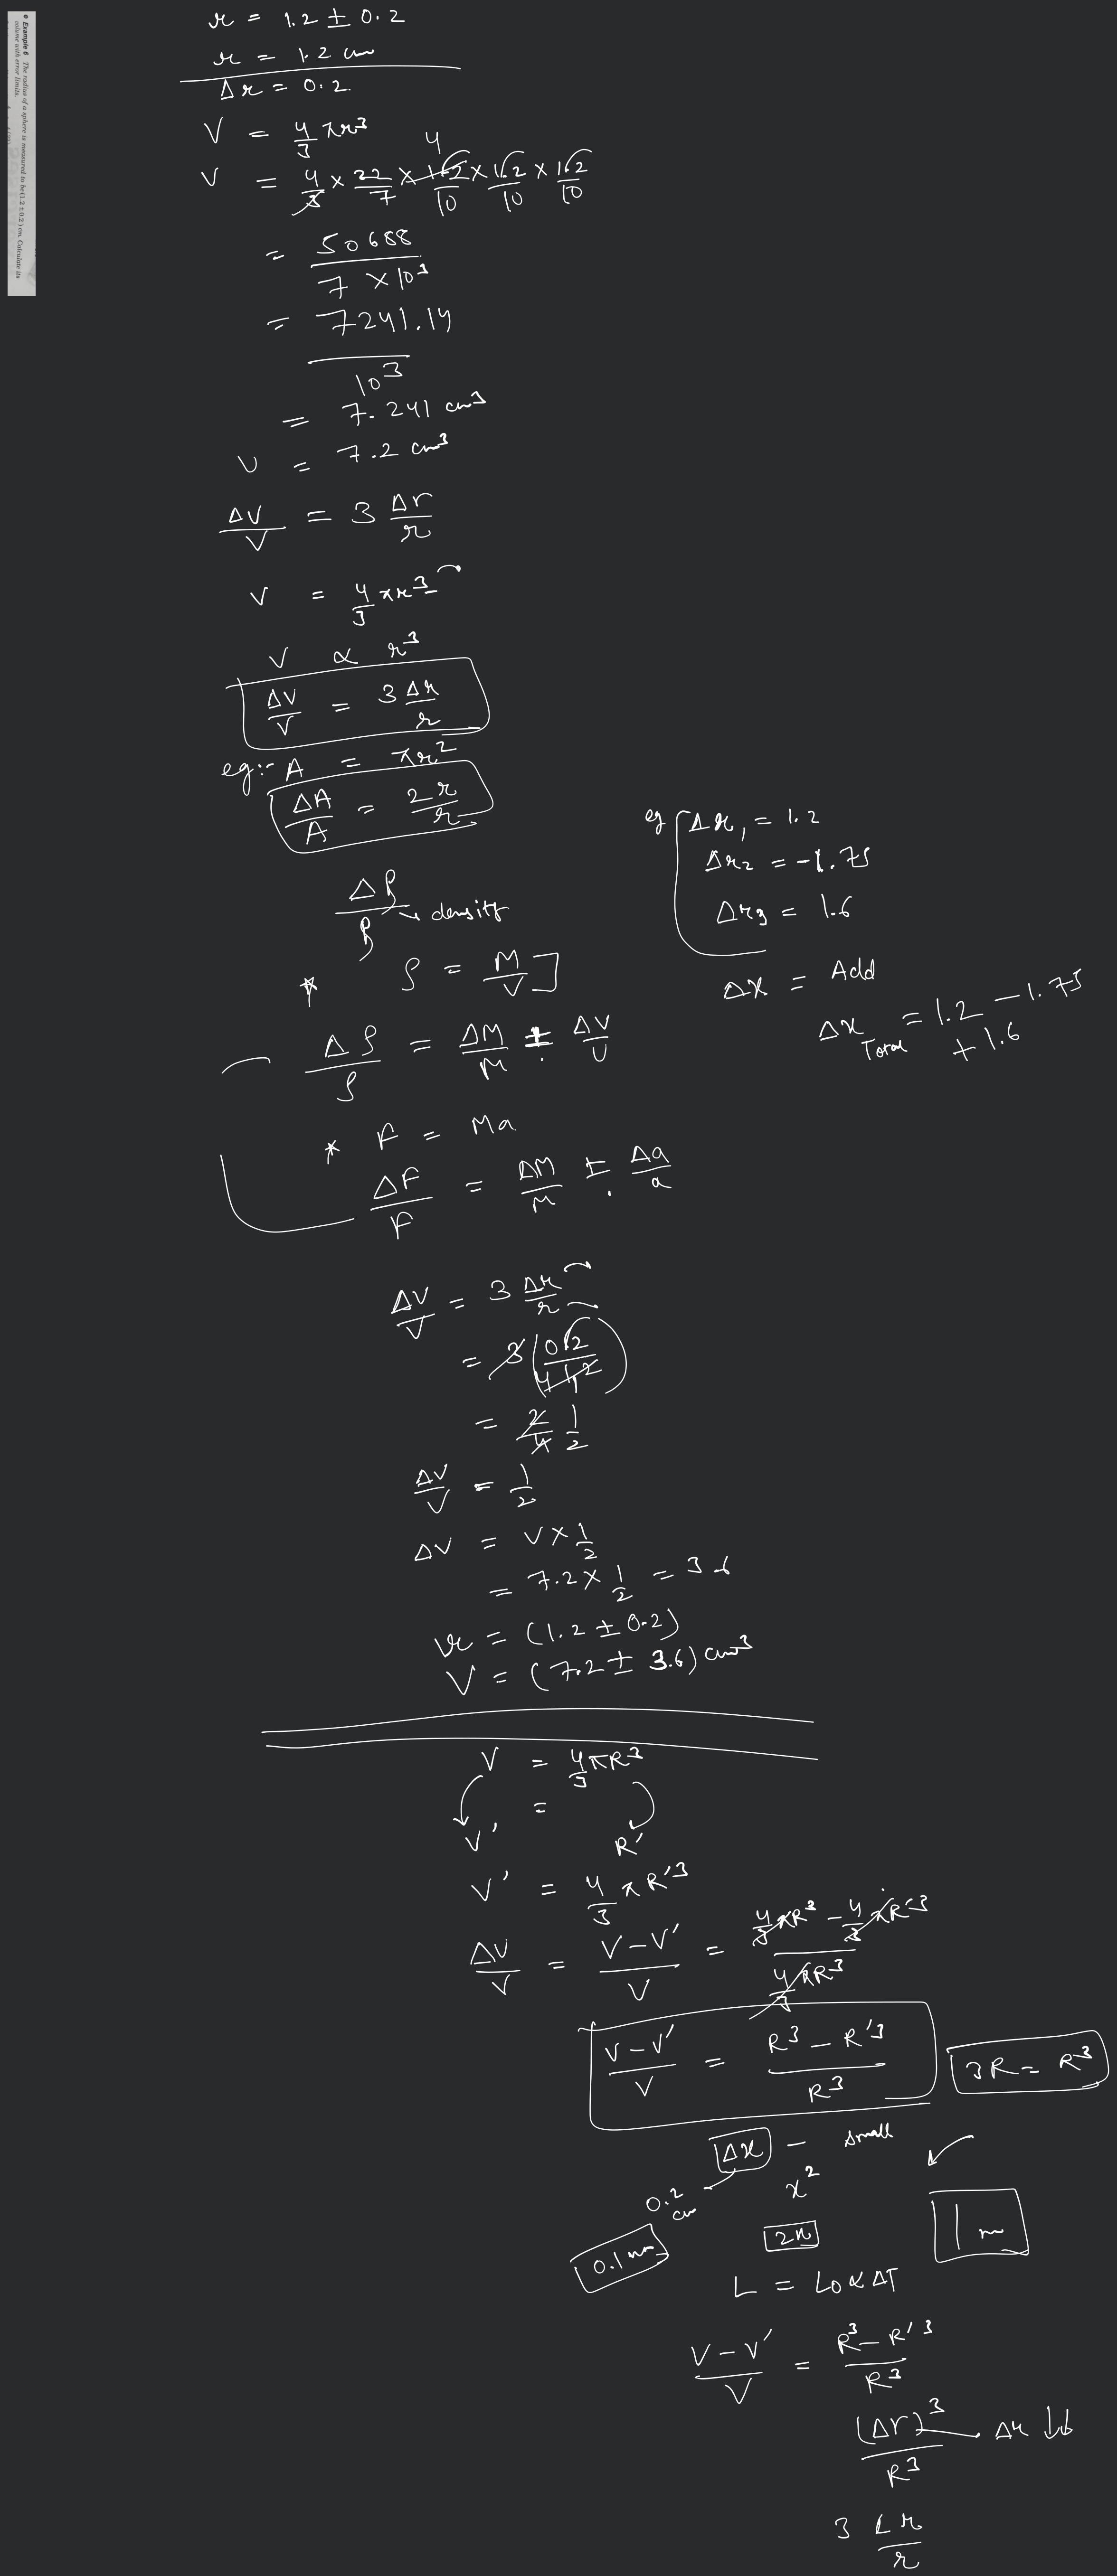 Example 6 The radius of a sphere is measured to be (1.2 ± 0.2) cm. Calculate its
volume with error limits.
r = 1.2 ± 0.2
r = 1.2 cm
Δr = 0.2
V = 4/3 πr³
4
V = 4/3 × 22/7 × 1.2/10 × 1.2/10 × 1.2/10
= 50688 / 7 × 10³
= 7241.14 / 10³
= 7.241 cm³
V = 7.2 cm³
ΔV/V = 3 Δr/r
V = 4/3 πr³
V ∝ r³
ΔV/V = 3 Δr/r
eg:- A = πr²
ΔA/A = 2r/r
eg Δx₁ = 1.2
Δx₂ = -1.75
Δx₃ = 1.6
Δx = Add
Δx Total = 1.2 - 1.75 + 1.6
Δρ/ρ → density
* ρ = M/V ]
Δρ/ρ = ΔM/M ± ΔV/V
* F = Ma
ΔF/F = ΔM/M ± Δa/a
ΔV/V = 3 Δr/r
= 3 (0.2 / 1.2) 4
= 2/4 1/2
ΔV/V = 1/2
ΔV = V × 1/2
= 7.2 × 1/2 = 3.6
r = (1.2 ± 0.2)
V = (7.2 ± 3.6) cm³
V = 4/3 πR³
=
V' R'
V' = 4/3 πR'³
ΔV/V = V-V'/V = 4/3 πR³ - 4/3 πR'³ / 4/3 πR³
V-V'/V = R³ - R'³ / R³
3R = R³
Δx - small
0.2 cm
x²
2x
1 m
0.1 mm
L = L₀ α ΔT
V-V'/V = R³ - R'³ / R³
(Δr)³ / R³ Δr ↓↓
3 Δr/r